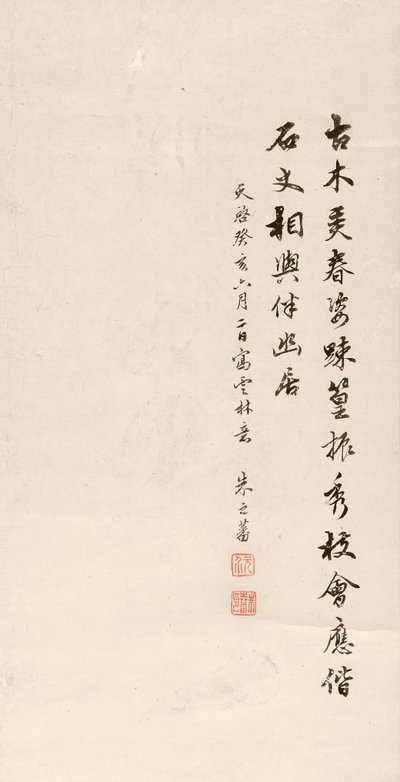 古木美春姿疎篁振秀枝會應偕
石丈相與伴幽居
天啓癸亥六月二日寫雲林意 朱之蕃
元介
朱之蕃印